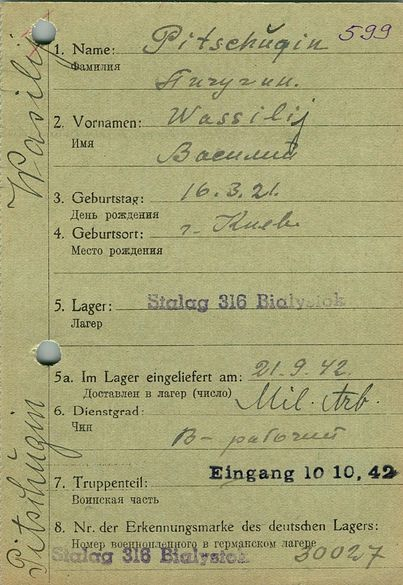 599
1. Name: Pitschugin
Фамилия
Пичугин.
2. Vornamen: Wassilij
Имя
Василий
3. Geburtstag: 16.3.21.
День рождения
4. Geburtsort: г. Киев
Место рождения
5. Lager: Stalag 316 Bialystok
Лагерь
5a. Im Lager eingeliefert am: 21.9.42.
Доставлен в лагерь (число)
6. Dienstgrad: Mil. Arb.
Чин
В- рабочий
Eingang 10 10, 42
7. Truppenteil:
Воинская часть
8. Nr. der Erkennungsmarke des deutschen Lagers:
Номер военнопленного в германском лагере
Stalag 316 Bialystok 30027
Pitschugin Wasilij